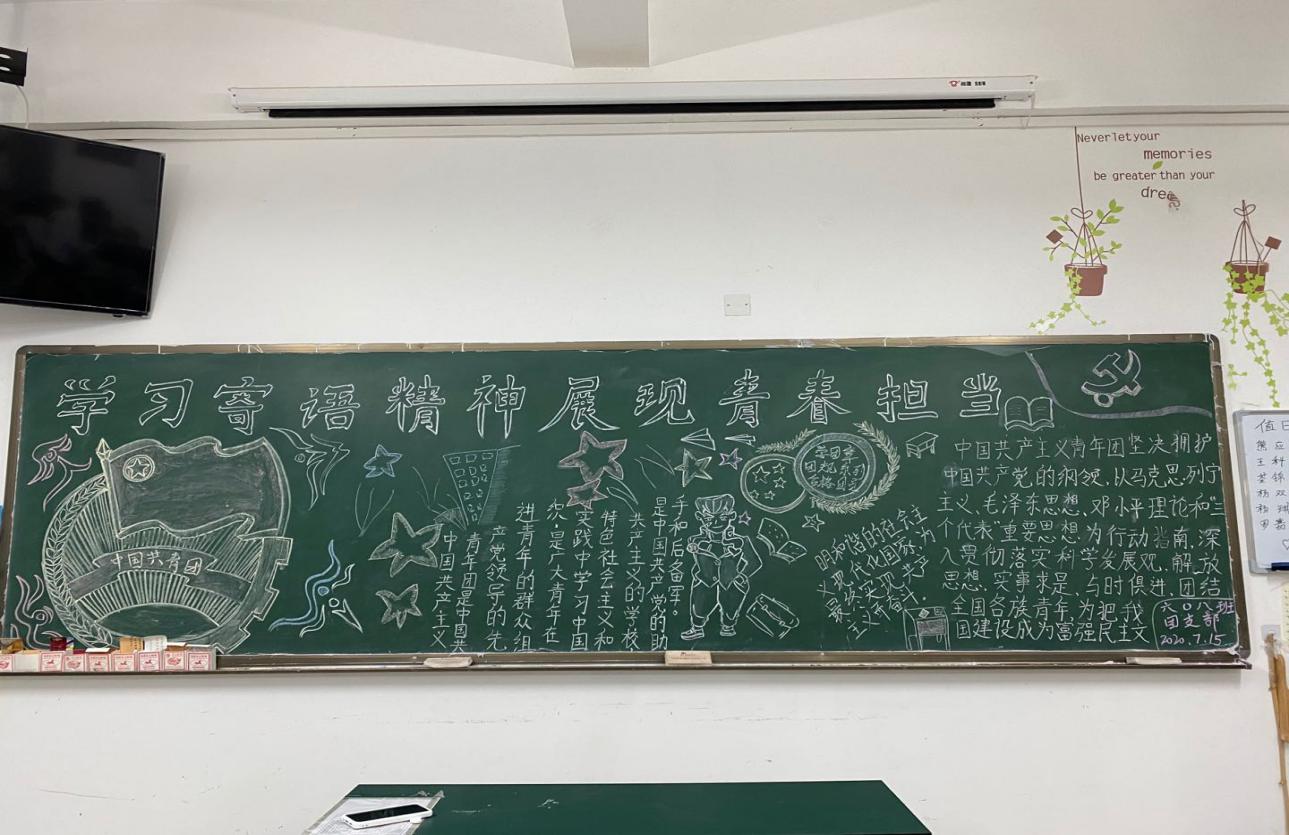 Never let your
memories
be greater than your
学习寄语精神展现青春担当
中国共青团
中国共产主义
青年团是中国共
产党领导的先
进青年的群众组
织,是广大青年在
实践中学习中国
特色社会主义和
共产主义的学校,
是中国共产党的助
手和后备军。
中国共产主义青年团坚决拥护
中国共产党的纲领,以马克思列宁
主义、毛泽东思想、邓小平理论和“三
个代表”重要思想为行动指南,深
入贯彻落实科学发展观,解放
思想,实事求是,与时俱进,团结
全国各族青年,为把我
国建设成为富强民主文
明和谐的社会主
义现代化国家,为
最终实现共产
主义而奋斗。
六〇八班
团支部
2020.7.15
值日